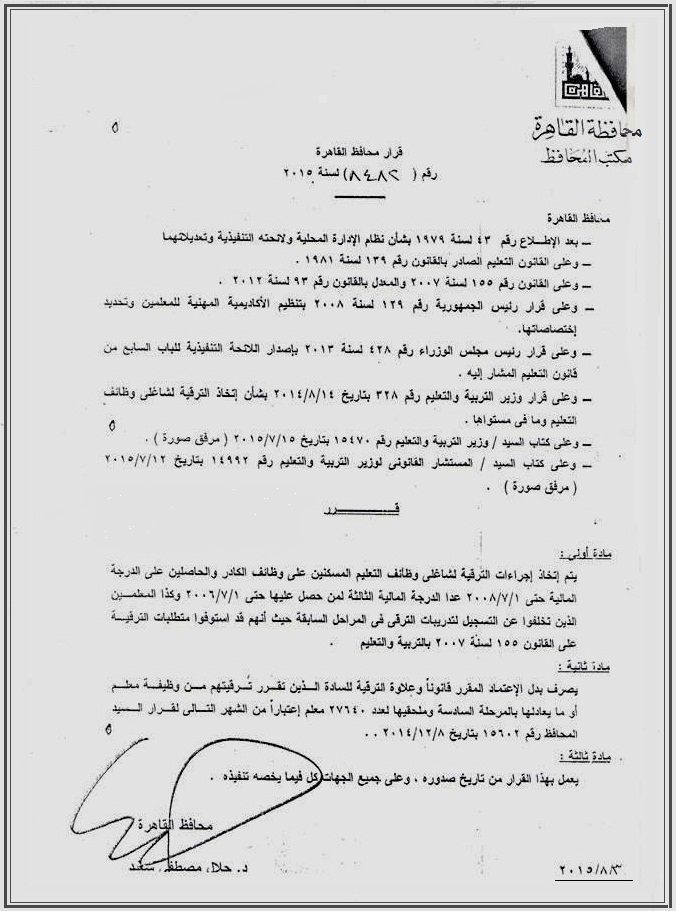 محافظة القاهرة
مكتب المحافظ
قرار محافظ القاهرة
رقم ( ٨٤٨٢ ) لسنة ٢٠١٥
محافظ القاهرة
– بعد الإطلاع رقم ٤٣ لسنة ١٩٧٩ بشأن نظام الإدارة المحلية ولائحته التنفيذية وتعديلاتهما
– وعلى القانون التعليم الصادر بالقانون رقم ١٣٩ لسنة ١٩٨١ .
– وعلى القانون رقم ١٥٥ لسنة ٢٠٠٧ والمعدل بالقانون رقم ٩٣ لسنة ٢٠١٢ .
– وعلى قرار رئيس الجمهورية رقم ١٢٩ لسنة ٢٠٠٨ بتنظيم الأكاديمية المهنية للمعلمين وتحديد
إختصاصاتها.
– وعلى قرار رئيس مجلس الوزراء رقم ٤٢٨ لسنة ٢٠١٣ بإصدار اللائحة التنفيذية للباب السابع من
قانون التعليم المشار إليه .
– وعلى قرار وزير التربية والتعليم رقم ٣٢٨ بتاريخ ٢٠١٤/٨/١٤ بشأن إتخاذ الترقية لشاغلى وظائف
التعليم وما فى مستواها .
– وعلى كتاب السيد / وزير التربية والتعليم رقم ١٥٤٧٠ بتاريخ ٢٠١٥/٧/١٥ ( مرفق صورة ) .
– وعلى كتاب السيد / المستشار القانونى لوزير التربية والتعليم رقم ١٤٩٩٢ بتاريخ ٢٠١٥/٧/١٢
( مرفق صورة ) .
قـــــــــرر
مادة أولى :
يتم إتخاذ إجراءات الترقية لشاغلى وظائف التعليم المسكنين على وظائف الكادر والحاصلين على الدرجة
المالية حتى ٢٠٠٨/٧/١ عدا الدرجة المالية الثالثة لمن حصل عليها حتى ٢٠٠٦/٧/١ وكذا المعلمين
الذين تخلفوا عن التسجيل لتدريبات الترقى فى المراحل السابقة حيث أنهم قد استوفوا متطلبات الترقية
على القانون ١٥٥ لسنة ٢٠٠٧ بالتربية والتعليم .
مادة ثانية :
يصرف بدل الإعتماد المقرر قانوناً وعلاوة الترقية للسادة الذين تقرر ترقيتهم من وظيفة معلم
أو ما يعادلها بالمرحلة السادسة وملحقيها لعدد ٢٧٦٤٠ معلم إعتباراً من الشهر التالى لقرار السيد
المحافظ رقم ١٥٦٠٢ بتاريخ ٢٠١٤/١٢/٨ . .
مادة ثالثة :
يعمل بهذا القرار من تاريخ صدوره ، وعلى جميع الجهات كل فيما يخصه تنفيذه .
محافظ القاهرة
د. جلال مصطفى سعيد
٢٠١٥/٨/٣